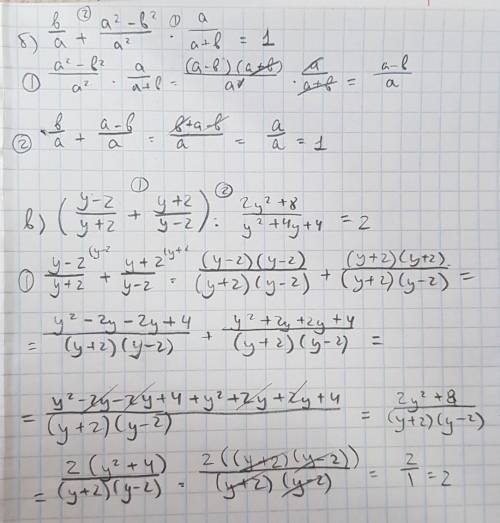 б) в/a + (a² - в²)/a² · a/(a+в) = 1
① (a² - в²)/a² · a/(a+в) = (a-в)(a+в)/a² · a/(a+в) = (a-в)/a
② в/a + (a-в)/a = (в+a-в)/a = a/a = 1
в) ((y-2)/(y+2) + (y+2)/(y-2)) : (2y²+8)/(y²+4y+4) = 2
① (y-2)/(y+2) + (y+2)/(y-2) = (y-2)(y-2)/(y+2)(y-2) + (y+2)(y+2)/(y+2)(y-2) =
= (y²-2y-2y+4)/(y+2)(y-2) + (y²+2y+2y+4)/(y+2)(y-2) =
= (y²-2y-2y+4+y²+2y+2y+4)/(y+2)(y-2) = (2y²+8)/(y+2)(y-2)
= 2(y²+4)/(y+2)(y-2) = 2((y+2)(y-2))/(y+2)(y-2) = 2/1 = 2